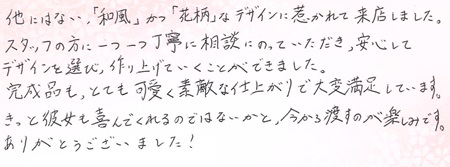 他にはない、「和風」かつ「花柄」なデザインに惹かれて来店しました。
スタッフの方に一つ一つ丁寧に相談にのっていただき、安心して
デザインを選び、作り上げていくことができました。
完成品も、とても可愛く素敵な仕上がりで大変満足しています。
きっと彼女も喜んでくれるのではないかと、今から渡すのが楽しみです。
ありがとうございました!